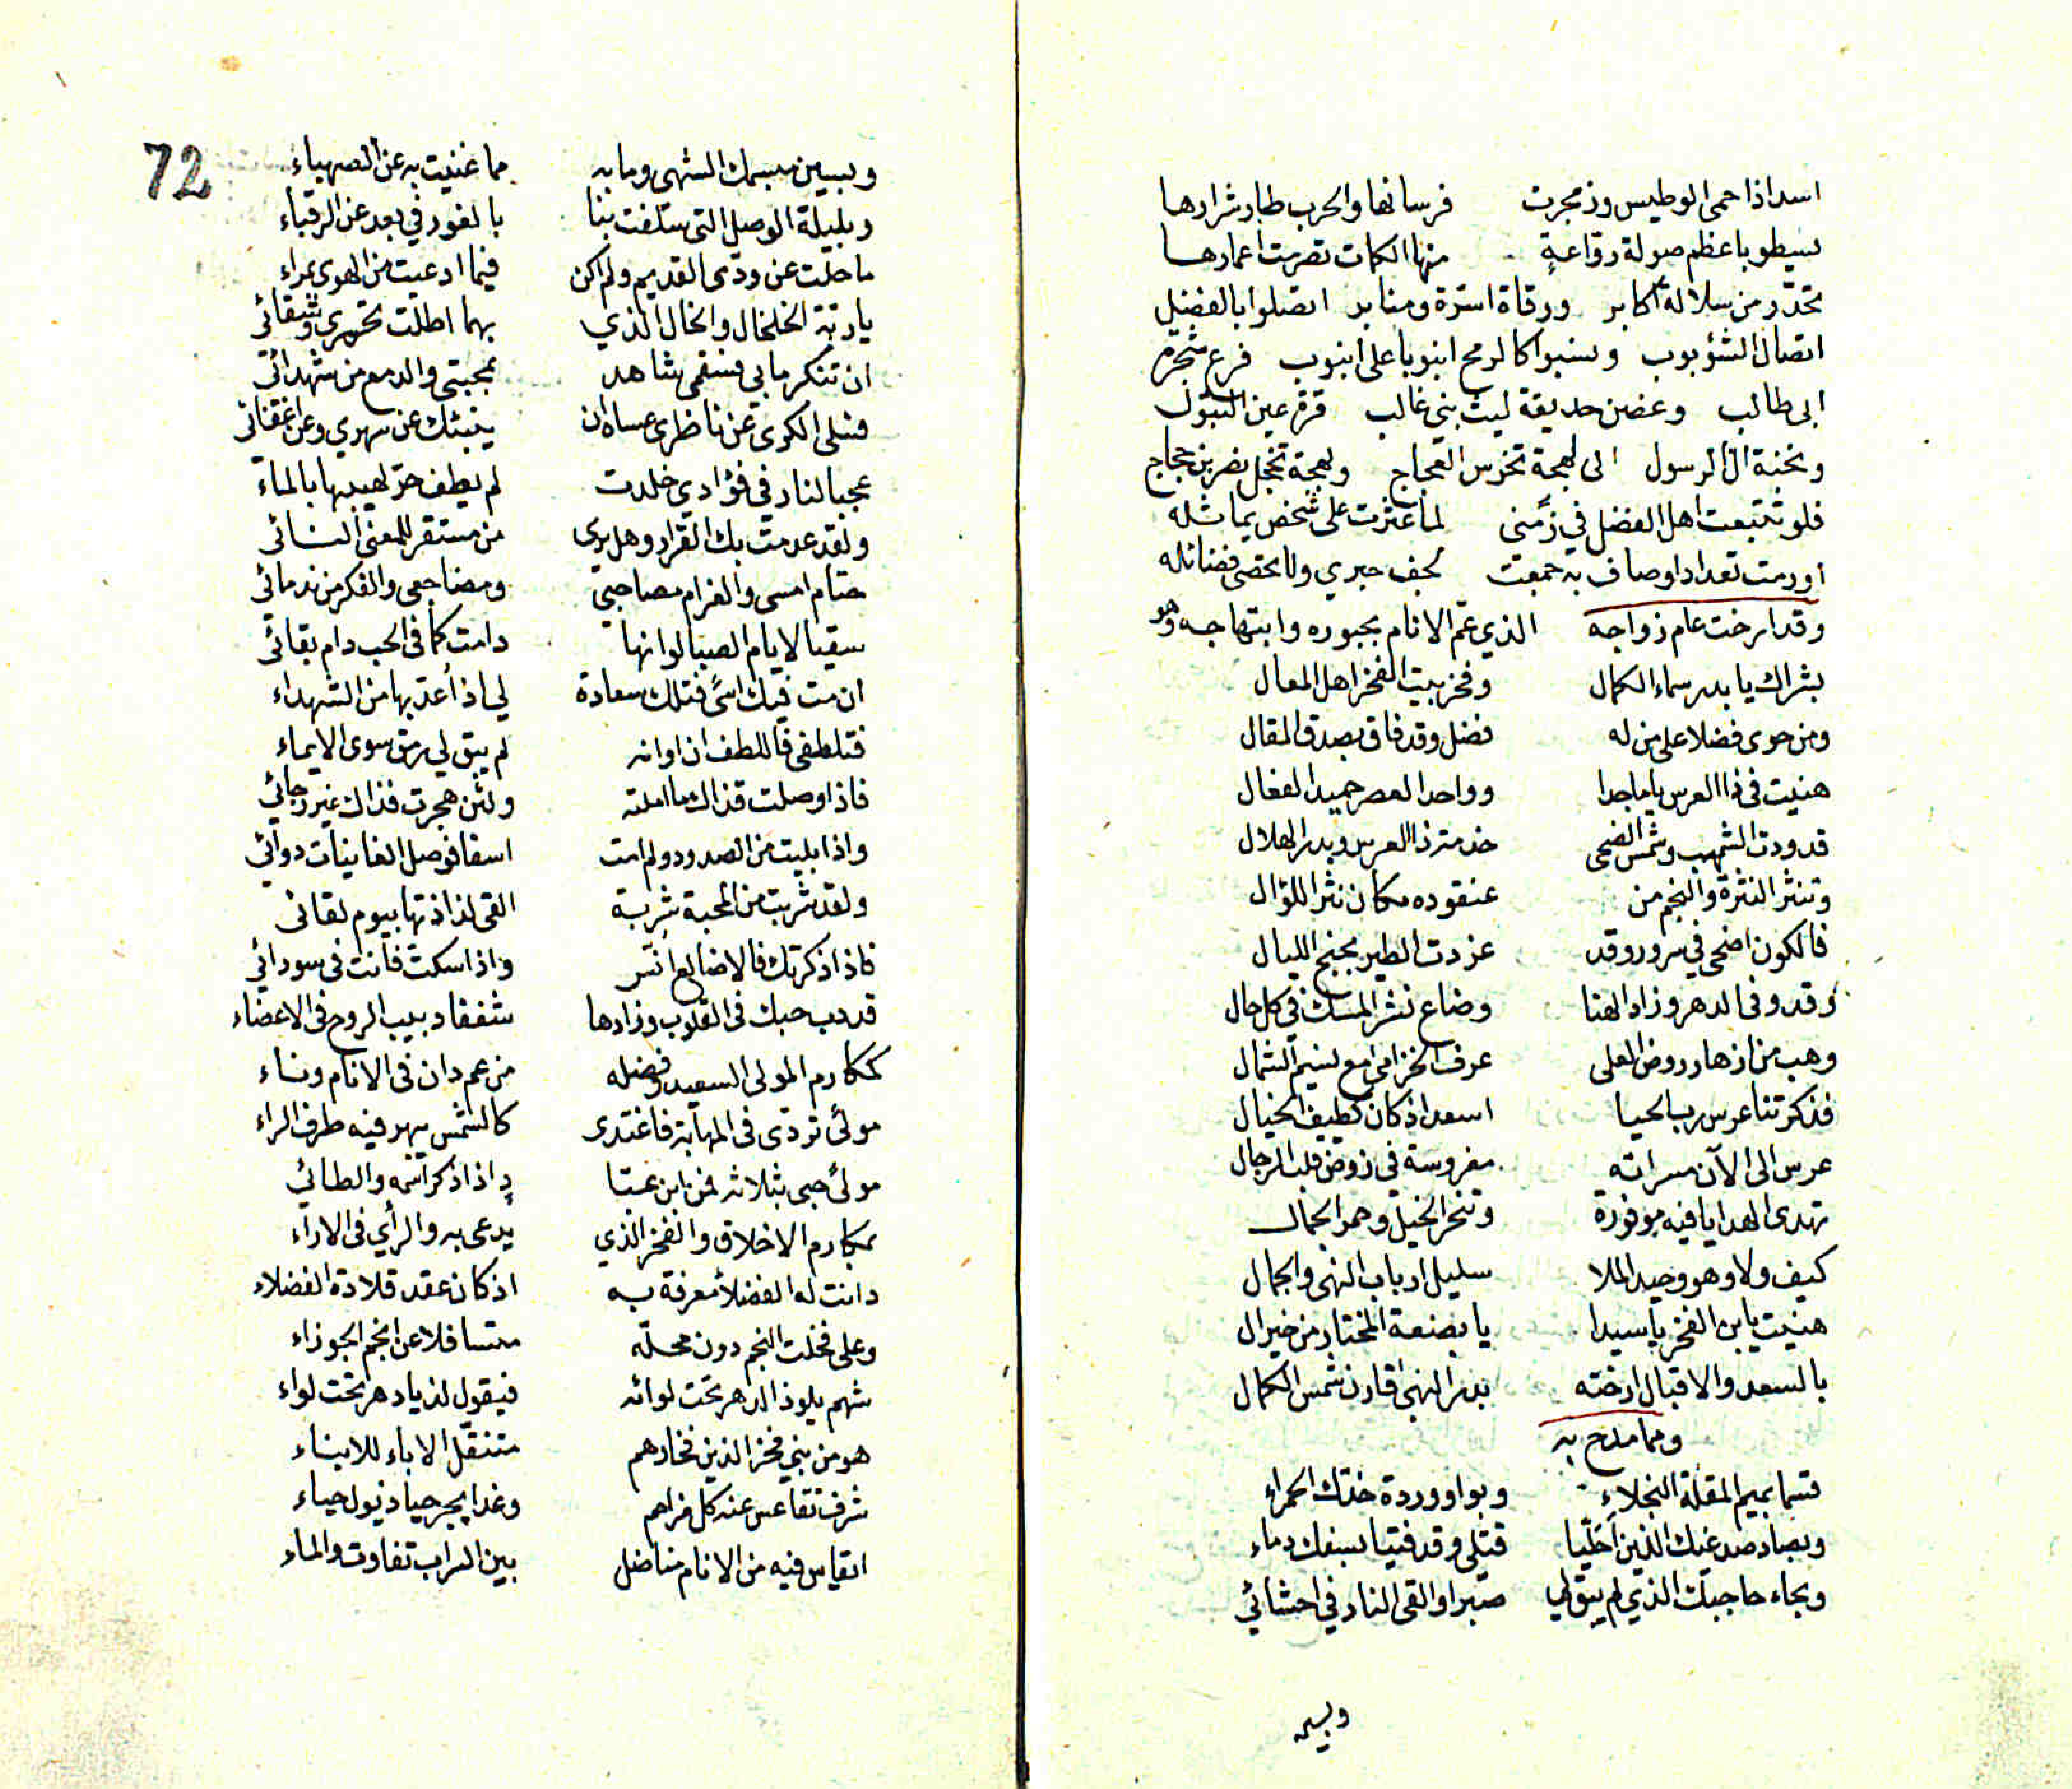 اسد اذا حمى الوطيس وزمجرت فرسانها والحرب طار شرارها
يسطو باعظم صولة رواعة منها الكمات تصرمت اعمارها
تحدر من سلالة اكابر ورقاة اسرة ومنابر اتصلوا بالفضل
اتصال الشؤبوب ونسبوا كالرمح انبوبا على انبوب فرع شجرة
ابى طالب وغصن حديقة ليث بنى غالب قرة عين البتول
ونخبة ال الرسول الى لهجة تخرس العجاج وبهجة تخجل نصر بن حجاج
فلو تتبعت اهل الفضل في زمنى لما عثرت على شخص يماثله
اورمت تعداد اوصاف به جمعت لجف حبري ولا تحصى فضائله
وقد ارخت عام زواجه الذي عم الانام بحبوره وابتهاجه وهو
بشراك يا بدر سماء الكمال وفخر بيت الفخر اهل المعال
ومن حوى فضلا على من له فضل وقد فاق بصدق المقال
هنيت فى ذا العرس يا ماجدا وواحد العصر حميد الفعال
قد ودت الشهب وشمس الضحى خدمة ذا العرس وبدر الهلال
وتنثر النثرة والنجم من عنقوده مكان نثر اللؤال
فالكون اضحى في سرور وقد غردت الطير بجنح الليال
وقد وفى الدهر وزاد الهنا وضاع نشر المسك في كل حال
وهب من ازهار روض العلى عرف الخزامى مع نسيم الشمال
فذكرتنا عرس رب الحيا اسعد اذ كان كطيف الخيال
عرس الى الآن مسراته مغروسة في روض قلب الرجال
تهدى الهدايا فيه موفورة وتنحر الخيل وحمر الجمال
كيف ولا وهو وحيد الملا سليل ارباب النهى والجمال
هنيت يابن الفخر يا سيدا يا بضعة المختار من خير ال
بالسعد والاقبال ارخته بدر النهى قارن شمس الكمال
ومما مدح به
قسما بميم المقلة النجلاء وبواو وردة خدك الحمراء
وبصاد صدغيك الذين احليا قتلى وقد فتيا بسفك دماء
وبحاء حاجبك الذي لم يبق لي صبرا والقى النار في احشائي
وبسين
وبسين مبسمك الشهى وما به مما غنيت به عن الصهباء
وبليلة الوصل التى سلفت بنا بالغور في بعد عن الرقباء
ما حلت عن ودى القديم ولم اكن فيما ادعيت من الهوى بمراء
يا ربة الخلخال والخال الذي بهما اطلت تحسرى وشقائى
ان تنكر ما بى فسقمى شاهد بمحبتى والدمع من شهدائى
فسلى الكرى عن ناظرى عساه ان ينبئك عن سهري وعن اغفائى
عجبا لنار في فؤادي خلدت لم يطف حر لهيبها بالماء
ولقد عدمت بك القرار وهل يرى من مستقر للمعنى النائى
حتام امسى والغرام مصاحبي ومضاجعى والفكر من ندمائى
سقيا لايام الصبا لو انها دامت كما فى الحب دام بقائى
ان مت فيك اسى فتلك سعادة لي اذ اعد بها من الشهداء
فتلطفى فاللطف ان اوانه لم يبق لي رمق سوى الايماء
فاذا وصلت فذاك ما املته ولئن هجرت فذاك غير رجائي
واذا بليت من الصدود ولم امت اسفا فوصل الغانيات دوائي
ولقد شربت من المحبة شربة القى لذاذتها بيوم لقائى
فاذا ذكرتك فالاضالع انت واذا سكت فانت فى سودائي
قد دب حبك فى القلوب وزادها شغفا دبيب الروح فى الاعضاء
كمكارم المولى السعيد وفضله من عم دان فى الانام وناء
مولى تردى فى المهابة فاغتدى كالشمس يبهر فيه طرف الراء
مولى حبى بثلاثة فمن ابن عبا دٍ اذا ذكر اسمه والطائي
بمكارم الاخلاق والفخر الذي يدعى به والرأي فى الاراء
دانت له الفضلأ معرفة به اذ كان عقد قلادة الفضلاء
وعلى فخلت النجم دون محله متسافلا عن انجم الجوزاء
شهم يلوذ الدهر تحت لوائه فيقول لذ يا دهر تحت لواء
هو من بني فخر الذين فخارهم متنقل الاباء للابناء
شرف تقاعس عنه كل مراهم وغدا يجر حيا ذيول حياء
ايقاس فيه من الانام مناضل بين السراب تفاوت والماء
72